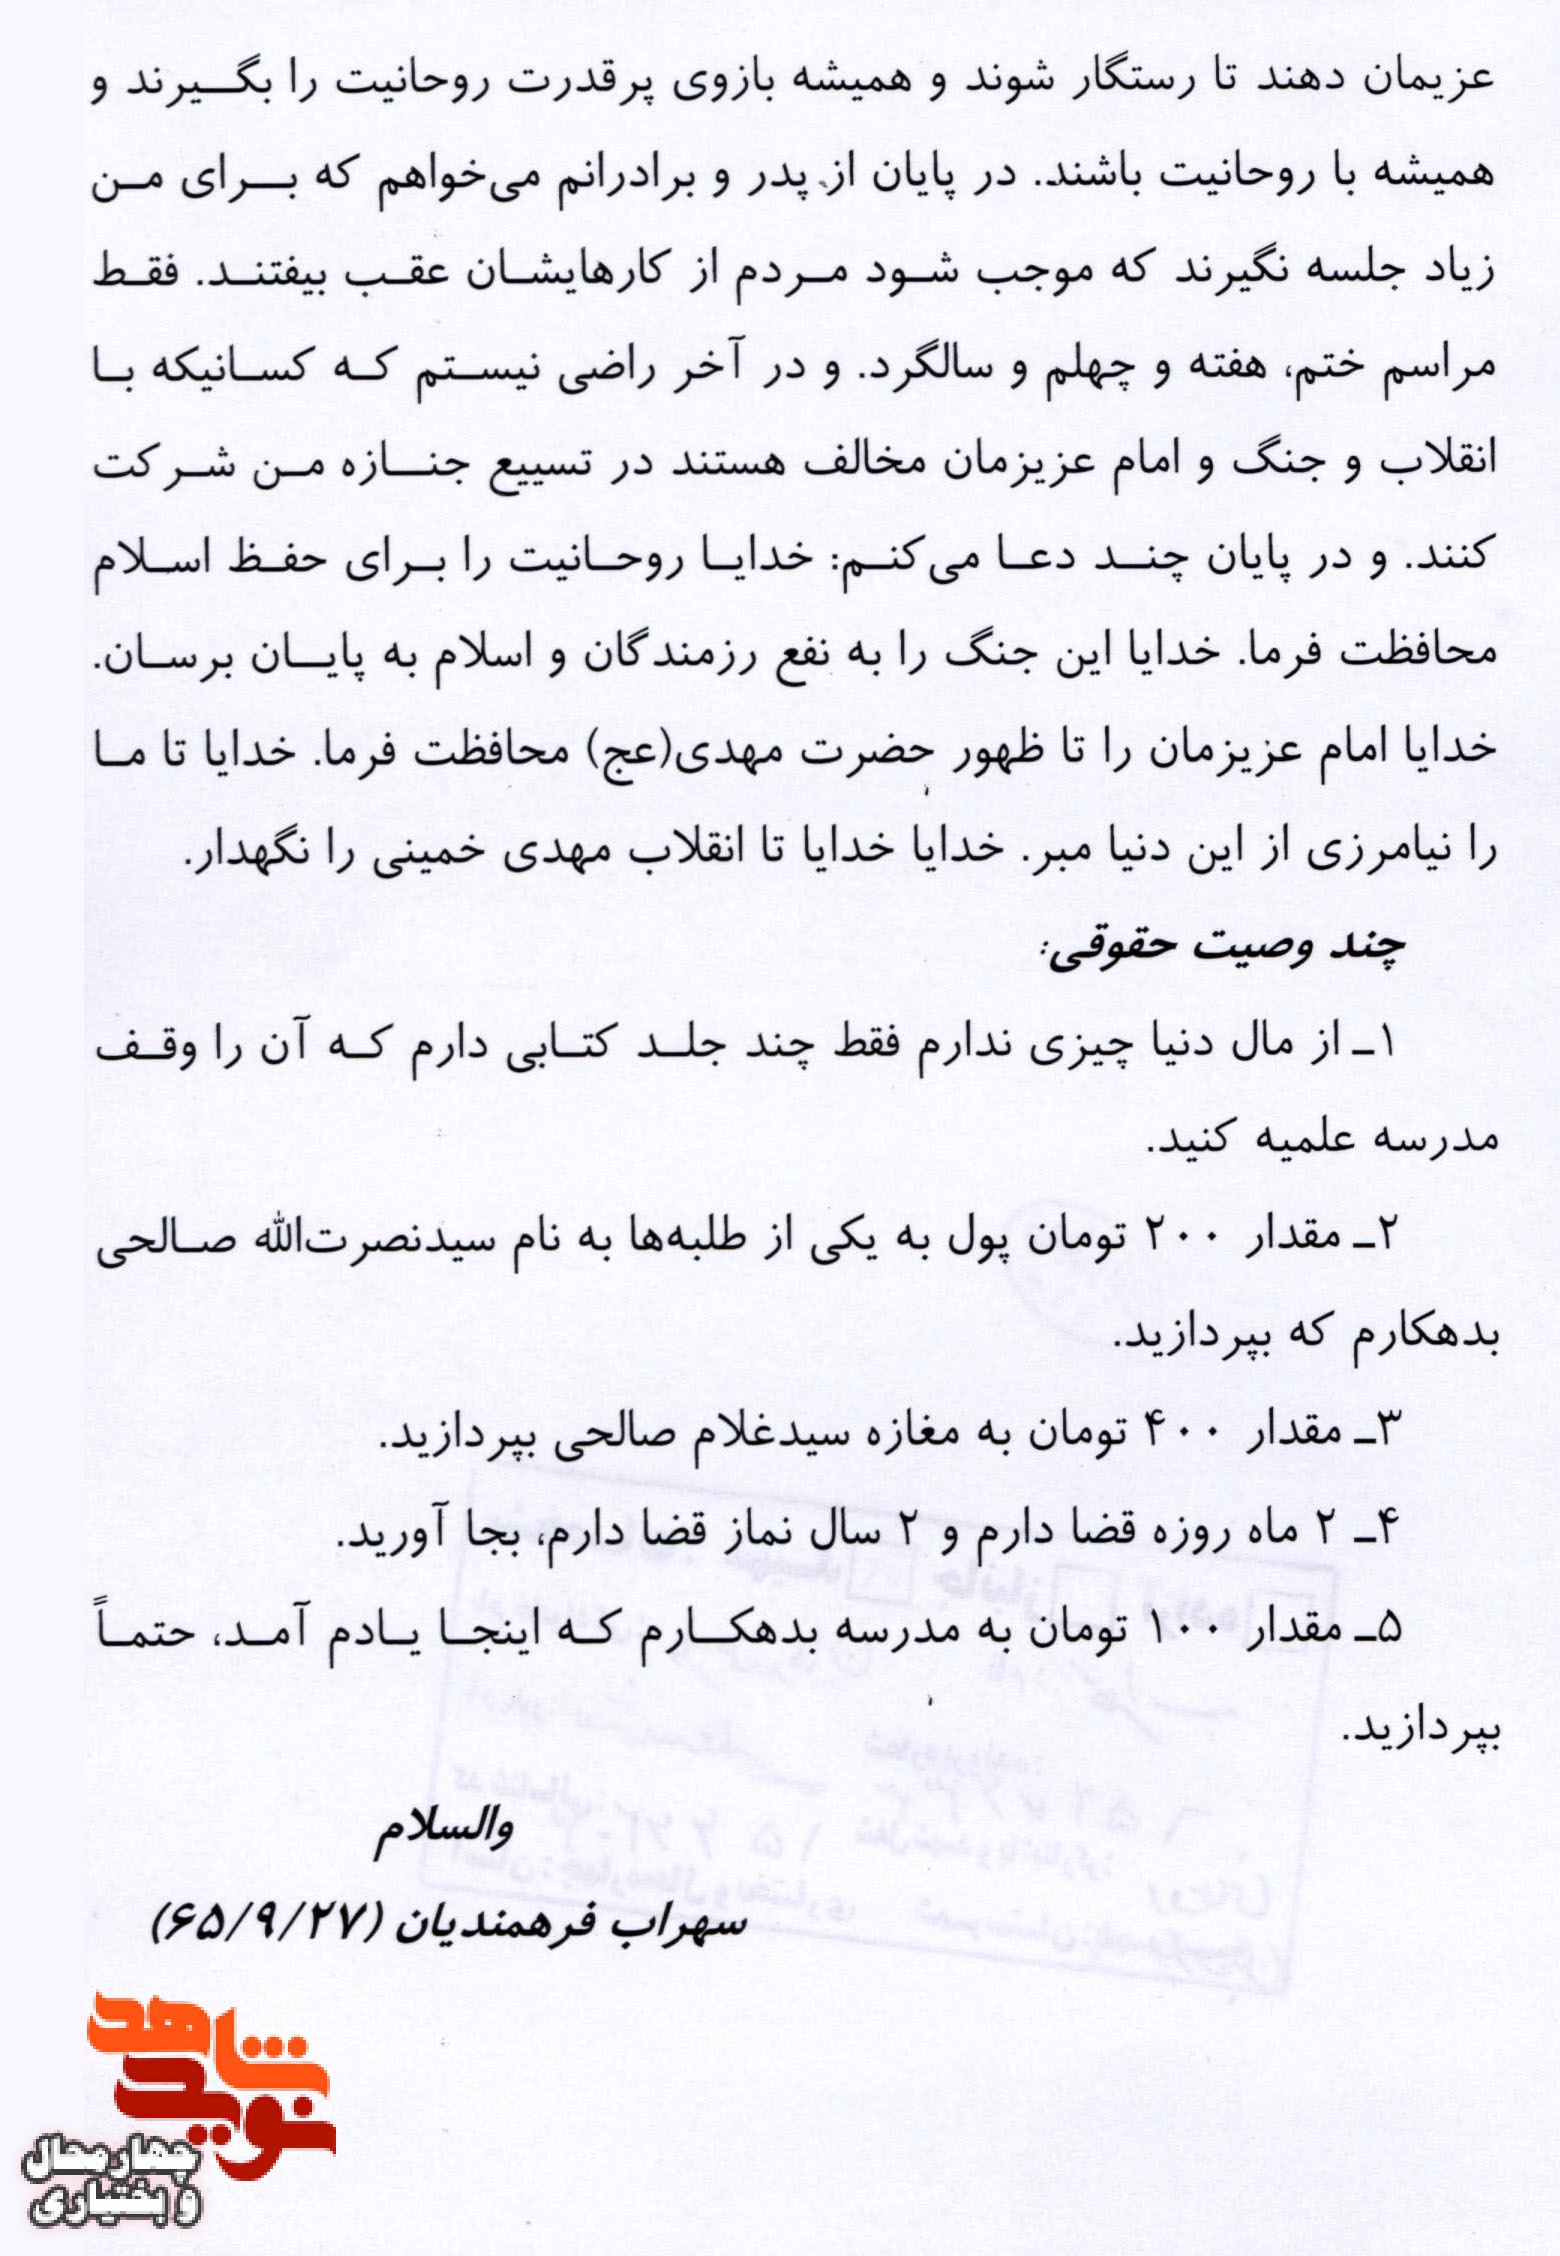 عزیمان دهند تا رستگار شوند و همیشه بازوی پرقدرت روحانیت را بگیرند و
همیشه با روحانیت باشند. در پایان از پدر و برادرانم می‌خواهم که برای من
زیاد جلسه نگیرند که موجب شود مردم از کارهایشان عقب بیفتند. فقط
مراسم ختم، هفته و چهلم و سالگرد. و در آخر راضی نیستم که کسانیکه با
انقلاب و جنگ و امام عزیزمان مخالف هستند در تسییع جنازه من شرکت
کنند. و در پایان چند دعا می‌کنم: خدایا روحانیت را برای حفظ اسلام
محافظت فرما. خدایا این جنگ را به نفع رزمندگان و اسلام به پایان برسان.
خدایا امام عزیزمان را تا ظهور حضرت مهدی(عج) محافظت فرما. خدایا تا ما
را نیامرزی از این دنیا مبر. خدایا خدایا تا انقلاب مهدی خمینی را نگهدار.
چند وصیت حقوقی:
۱ـ از مال دنیا چیزی ندارم فقط چند جلد کتابی دارم که آن را وقف
مدرسه علمیه کنید.
۲ـ مقدار ۲۰۰ تومان پول به یکی از طلبه‌ها به نام سیدنصرت‌الله صالحی
بدهکارم که بپردازید.
۳ـ مقدار ۴۰۰ تومان به مغازه سیدغلام صالحی بپردازید.
۴ـ ۲ ماه روزه قضا دارم و ۲ سال نماز قضا دارم، بجا آورید.
۵ـ مقدار ۱۰۰ تومان به مدرسه بدهکارم که اینجا یادم آمد، حتماً
بپردازید.
والسلام
سهراب فرهمندیان (۶۵/۹/۲۷)
نوید شاهد
چهارمحال
و بختیاری